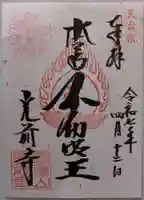 天台宗
奉拝
令和七年
四月十二日
本尊
不動明王
光前寺